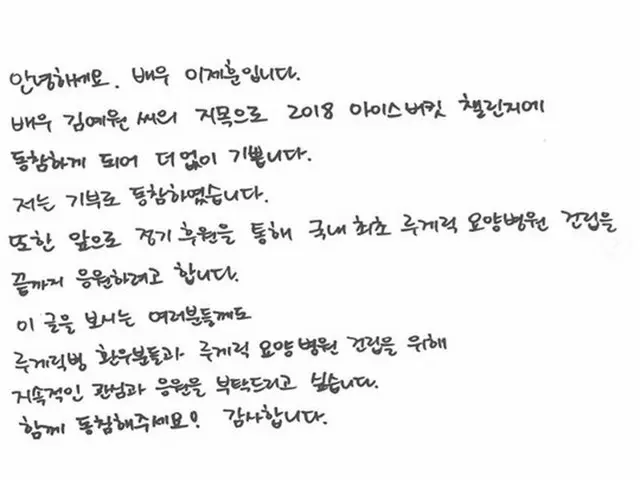 안녕하세요. 배우 이제훈입니다.
배우 김예원 씨의 지목으로 2018 아이스버킷 챌린지에
동참하게 되어 더없이 기쁩니다.
저는 기부로 동참하였습니다.
또한 앞으로 정기 후원을 통해 국내 최초 루게릭 요양병원 건립을
끝까지 응원하려고 합니다.
이 글을 보시는 여러분들께도
루게릭병 환우분들과 루게릭 요양병원 건립을 위해
지속적인 관심과 응원을 부탁드리고 싶습니다.
함께 동참해주세요! 감사합니다.